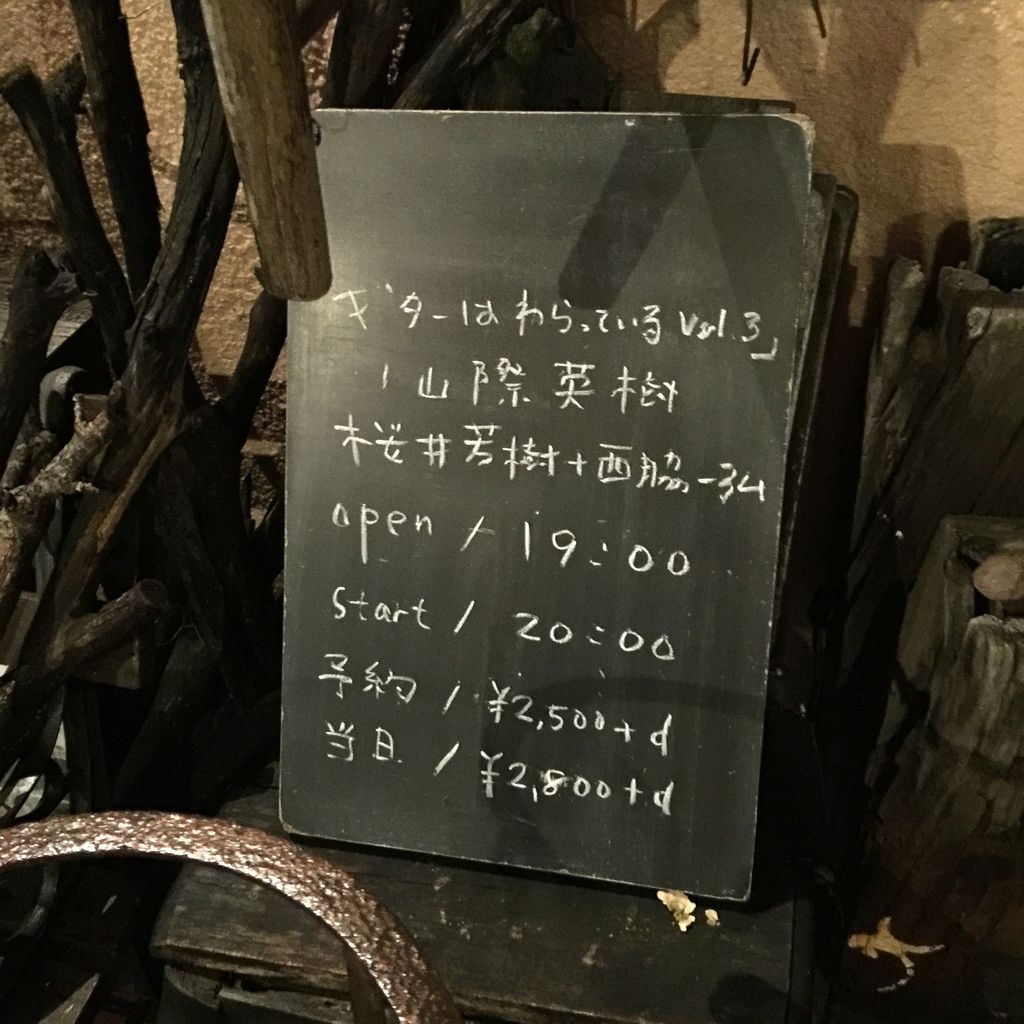 ギターはわらっている Vol.3」
山際英樹
桜井芳樹+西脇一弘
open / 19:00
Start / 20:00
予約 / ¥2,500+d
当日 / ¥2,800+d